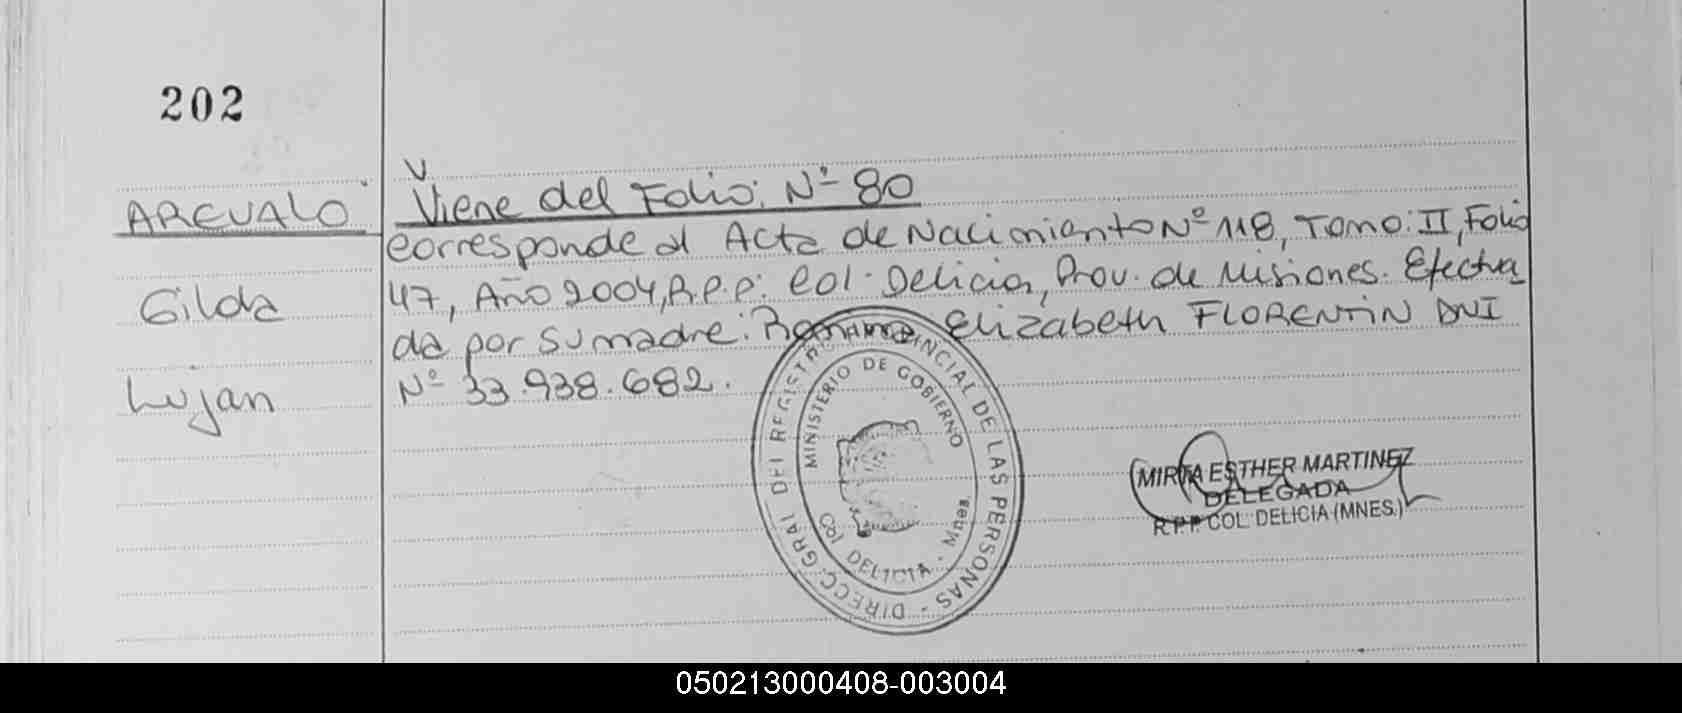 202
V
AREVALO
Viene del Folio: Nº 80
Gilda
Lujan
corresponde al Acta de Nacimiento Nº 118, Tomo: II, Folio
47, Año 2004, R.P.P. Col. Delicia, Prov. de Misiones. Efectua
da por su madre: Elizabeth FLORENTIN DNI
Nº 33.938.682.
DIRECC. GRAL DEL REGISTRO PROVINCIAL DE LAS PERSONAS -
MINISTERIO DE GOBIERNO
Col DELICIA - Mnes
MIRTA ESTHER MARTINEZ
DELEGADA
R.P.P. COL. DELICIA (MNES.)
050213000408-003004